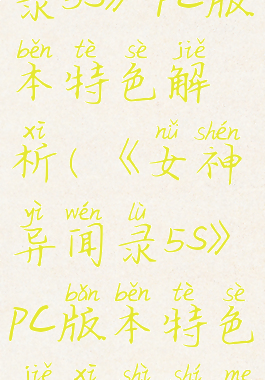 录5S》PC版
běn tè sè jiě
本特色解
xī nǚ shén
析(《女神
yì wén lù
异闻录5S》
bǎn běn tè sè
PC版本特色
jiě xī shì shí me